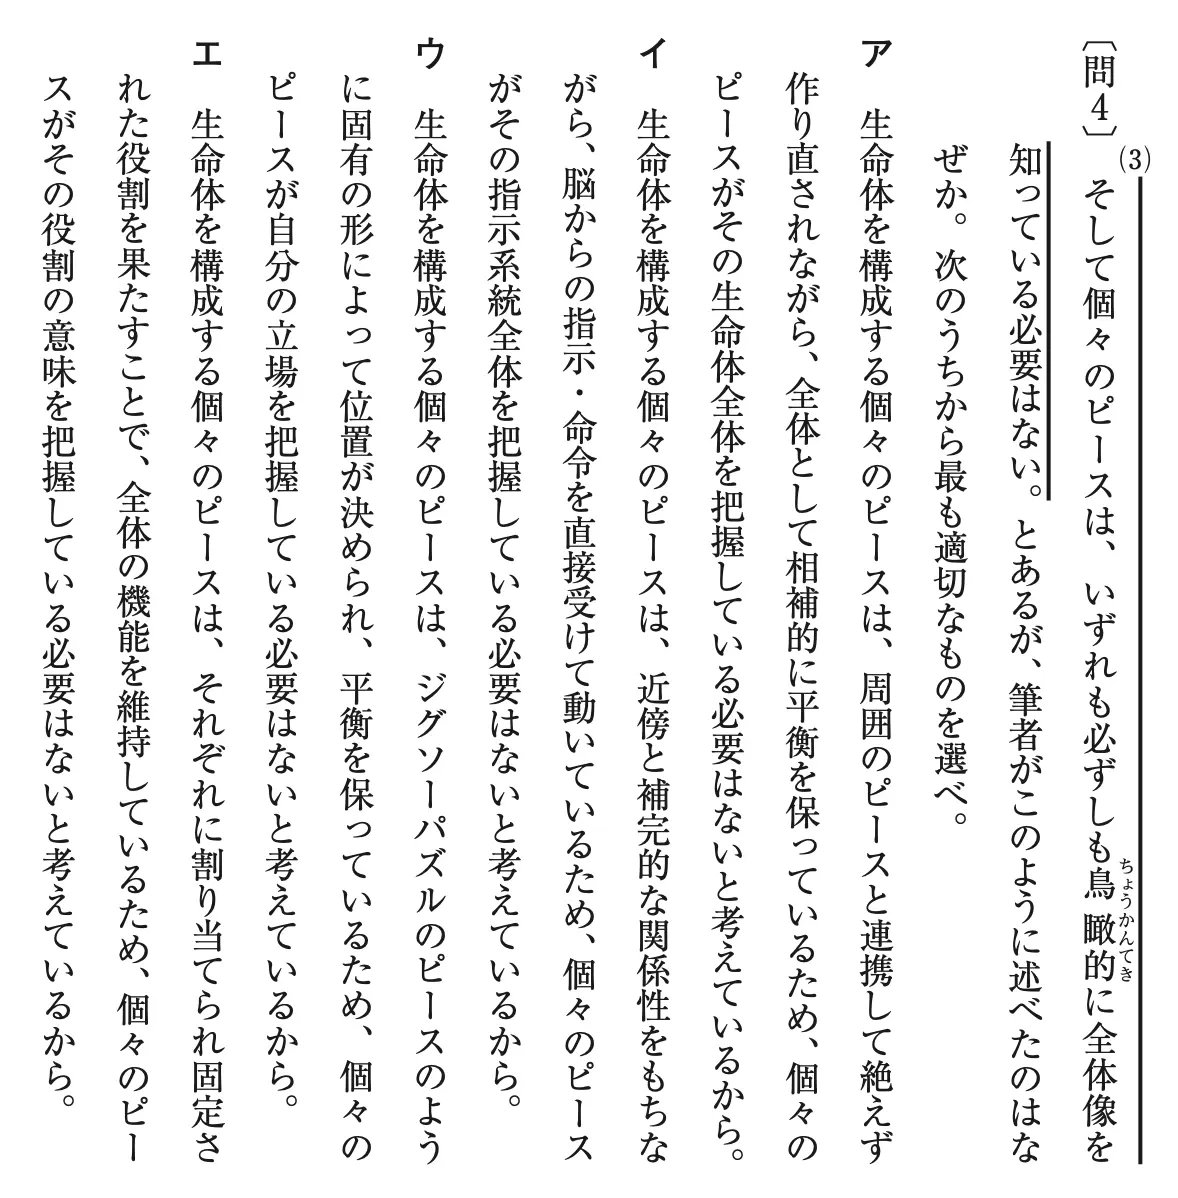 〔問4〕 (3)そして個々のピースは、いずれも必ずしも鳥瞰的に全体像を
ちょうかんてき
知っている必要はない。とあるが、筆者がこのように述べたのはな
ぜか。次のうちから最も適切なものを選べ。
ア 生命体を構成する個々のピースは、周囲のピースと連携して絶えず
作り直されながら、全体として相補的に平衡を保っているため、個々の
ピースがその生命体全体を把握している必要はないと考えているから。
イ 生命体を構成する個々のピースは、近傍と補完的な関係性をもちな
がら、脳からの指示・命令を直接受けて動いているため、個々のピース
がその指示系統全体を把握している必要はないと考えているから。
ウ 生命体を構成する個々のピースは、ジグソーパズルのピースのよう
に固有の形によって位置が決められ、平衡を保っているため、個々の
ピースが自分の立場を把握している必要はないと考えているから。
エ 生命体を構成する個々のピースは、それぞれに割り当てられ固定さ
れた役割を果たすことで、全体の機能を維持しているため、個々のピー
スがその役割の意味を把握している必要はないと考えているから。